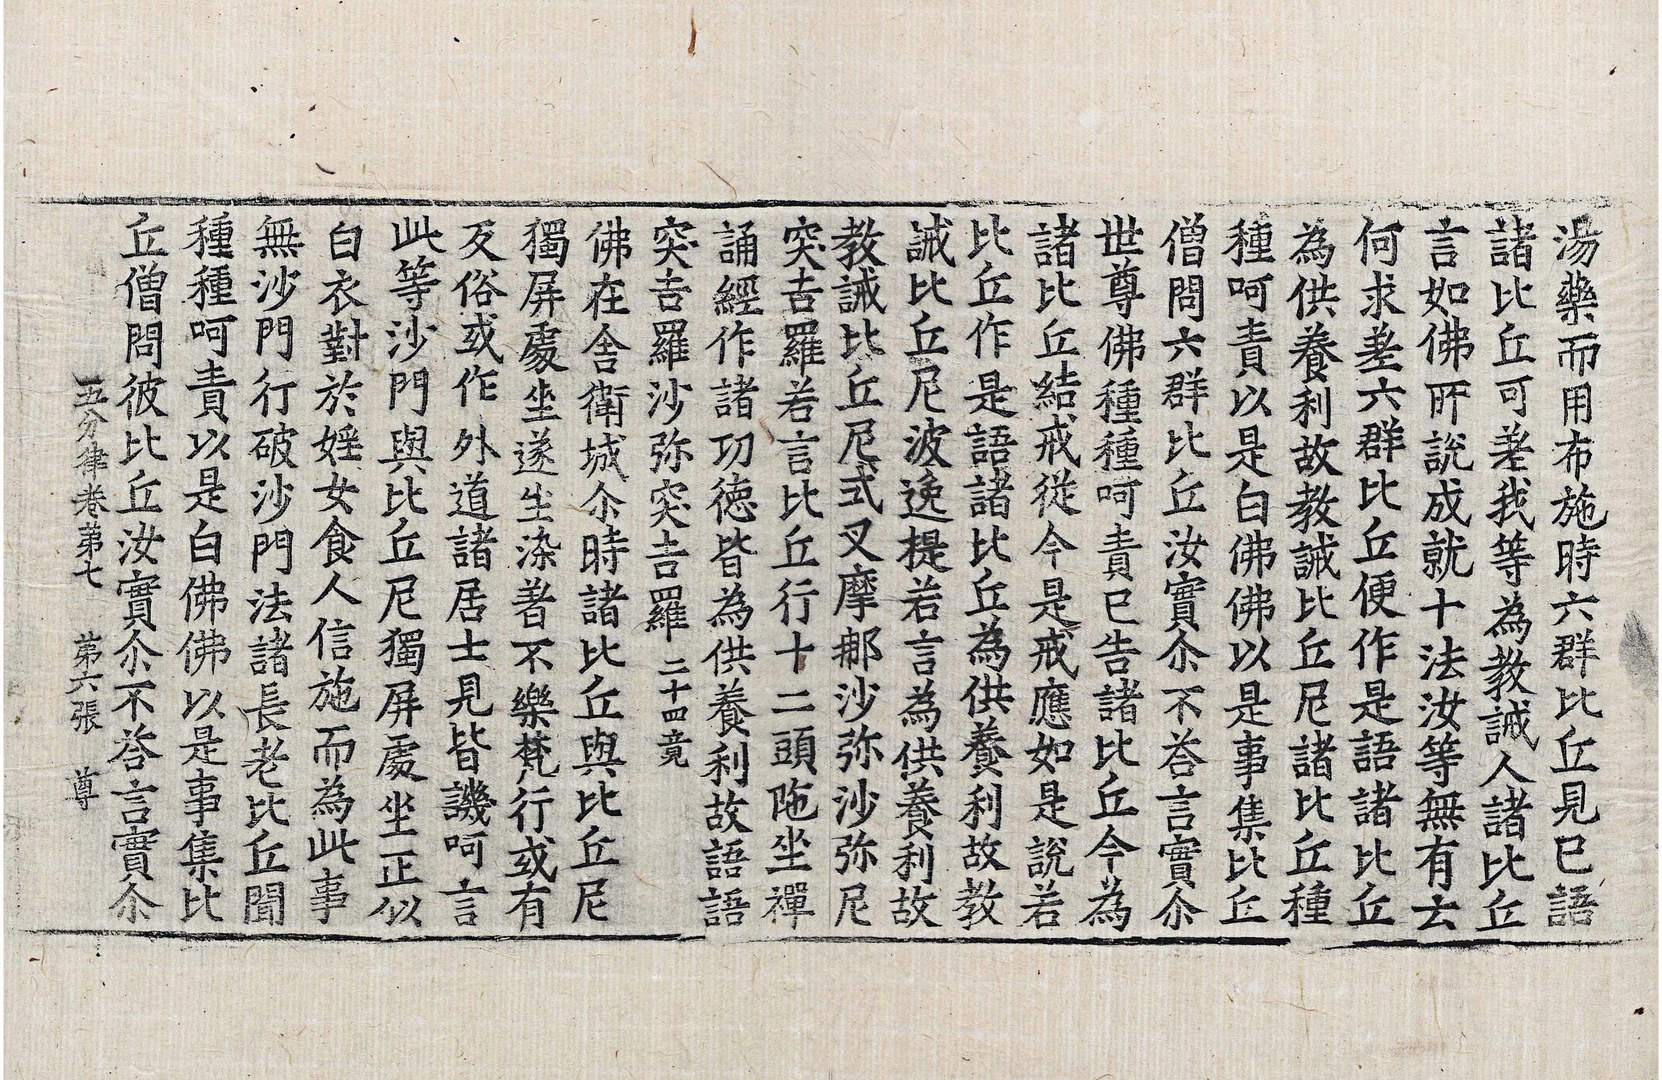 湯藥而用布施時六群比丘見已語
諸比丘可差我等為教誡人諸比丘
言如佛所說成就十法汝等無有云
何求差六群比丘便作是語諸比丘
為供養利故教誡比丘尼諸比丘種
種呵責以是白佛佛以是事集比丘
僧問六群比丘汝實尒不荅言實尒
世尊佛種種呵責已告諸比丘今為
諸比丘結戒從今是戒應如是說若
比丘作是語諸比丘為供養利故教
誡比丘尼波逸提若言為供養利故
教誡比丘尼式叉摩那沙弥沙弥尼
突吉羅若言比丘行十二頭陁坐禪
誦經作諸功德皆為供養利故語語
突吉羅沙弥突吉羅 二十四竟
佛在舍衛城尒時諸比丘與比丘尼
獨屏處坐遂生染著不樂梵行或有
反俗或作外道諸居士見皆譏呵言
此等沙門與比丘尼獨屏處坐正似
白衣對於婬女食人信施而為此事
無沙門行破沙門法諸長老比丘聞
種種呵責以是白佛佛以是事集比
丘僧問彼比丘汝實尒不荅言實尒
五分律卷第七 第六張 尊